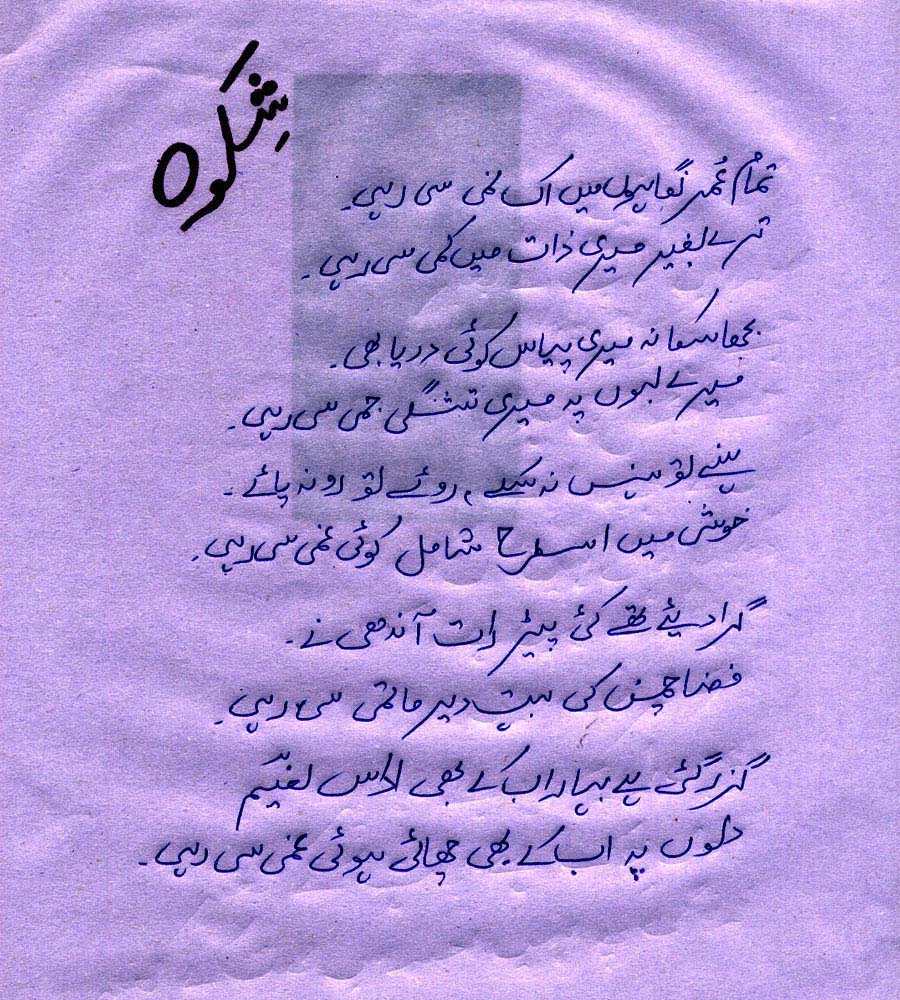 شِکوہ
تمام عُمر نگاہوں میں اک نمی سی رہی۔
ترے بغیر میری ذات میں کمی سی رہی۔
بجھا سکا نہ میری پیاس کوئی دریا بھی۔
میرے لبوں پہ میری تشنگی جمی سی رہی۔
ہنسے تو ہنس نہ سکے، روئے تو رو نہ پائے۔
خوشی میں اسطرح شامل کوئی غمی سی رہی۔
گرا دیئے تھے کئی پیڑ رات آندھی نے۔
فضا چمن کی بہت دیر ماتمی سی رہی۔
گزر گئی ہے بہار اب کے بھی اداس
دلوں پہ اب کے بھی چھائی ہوئی غمی سی رہی۔